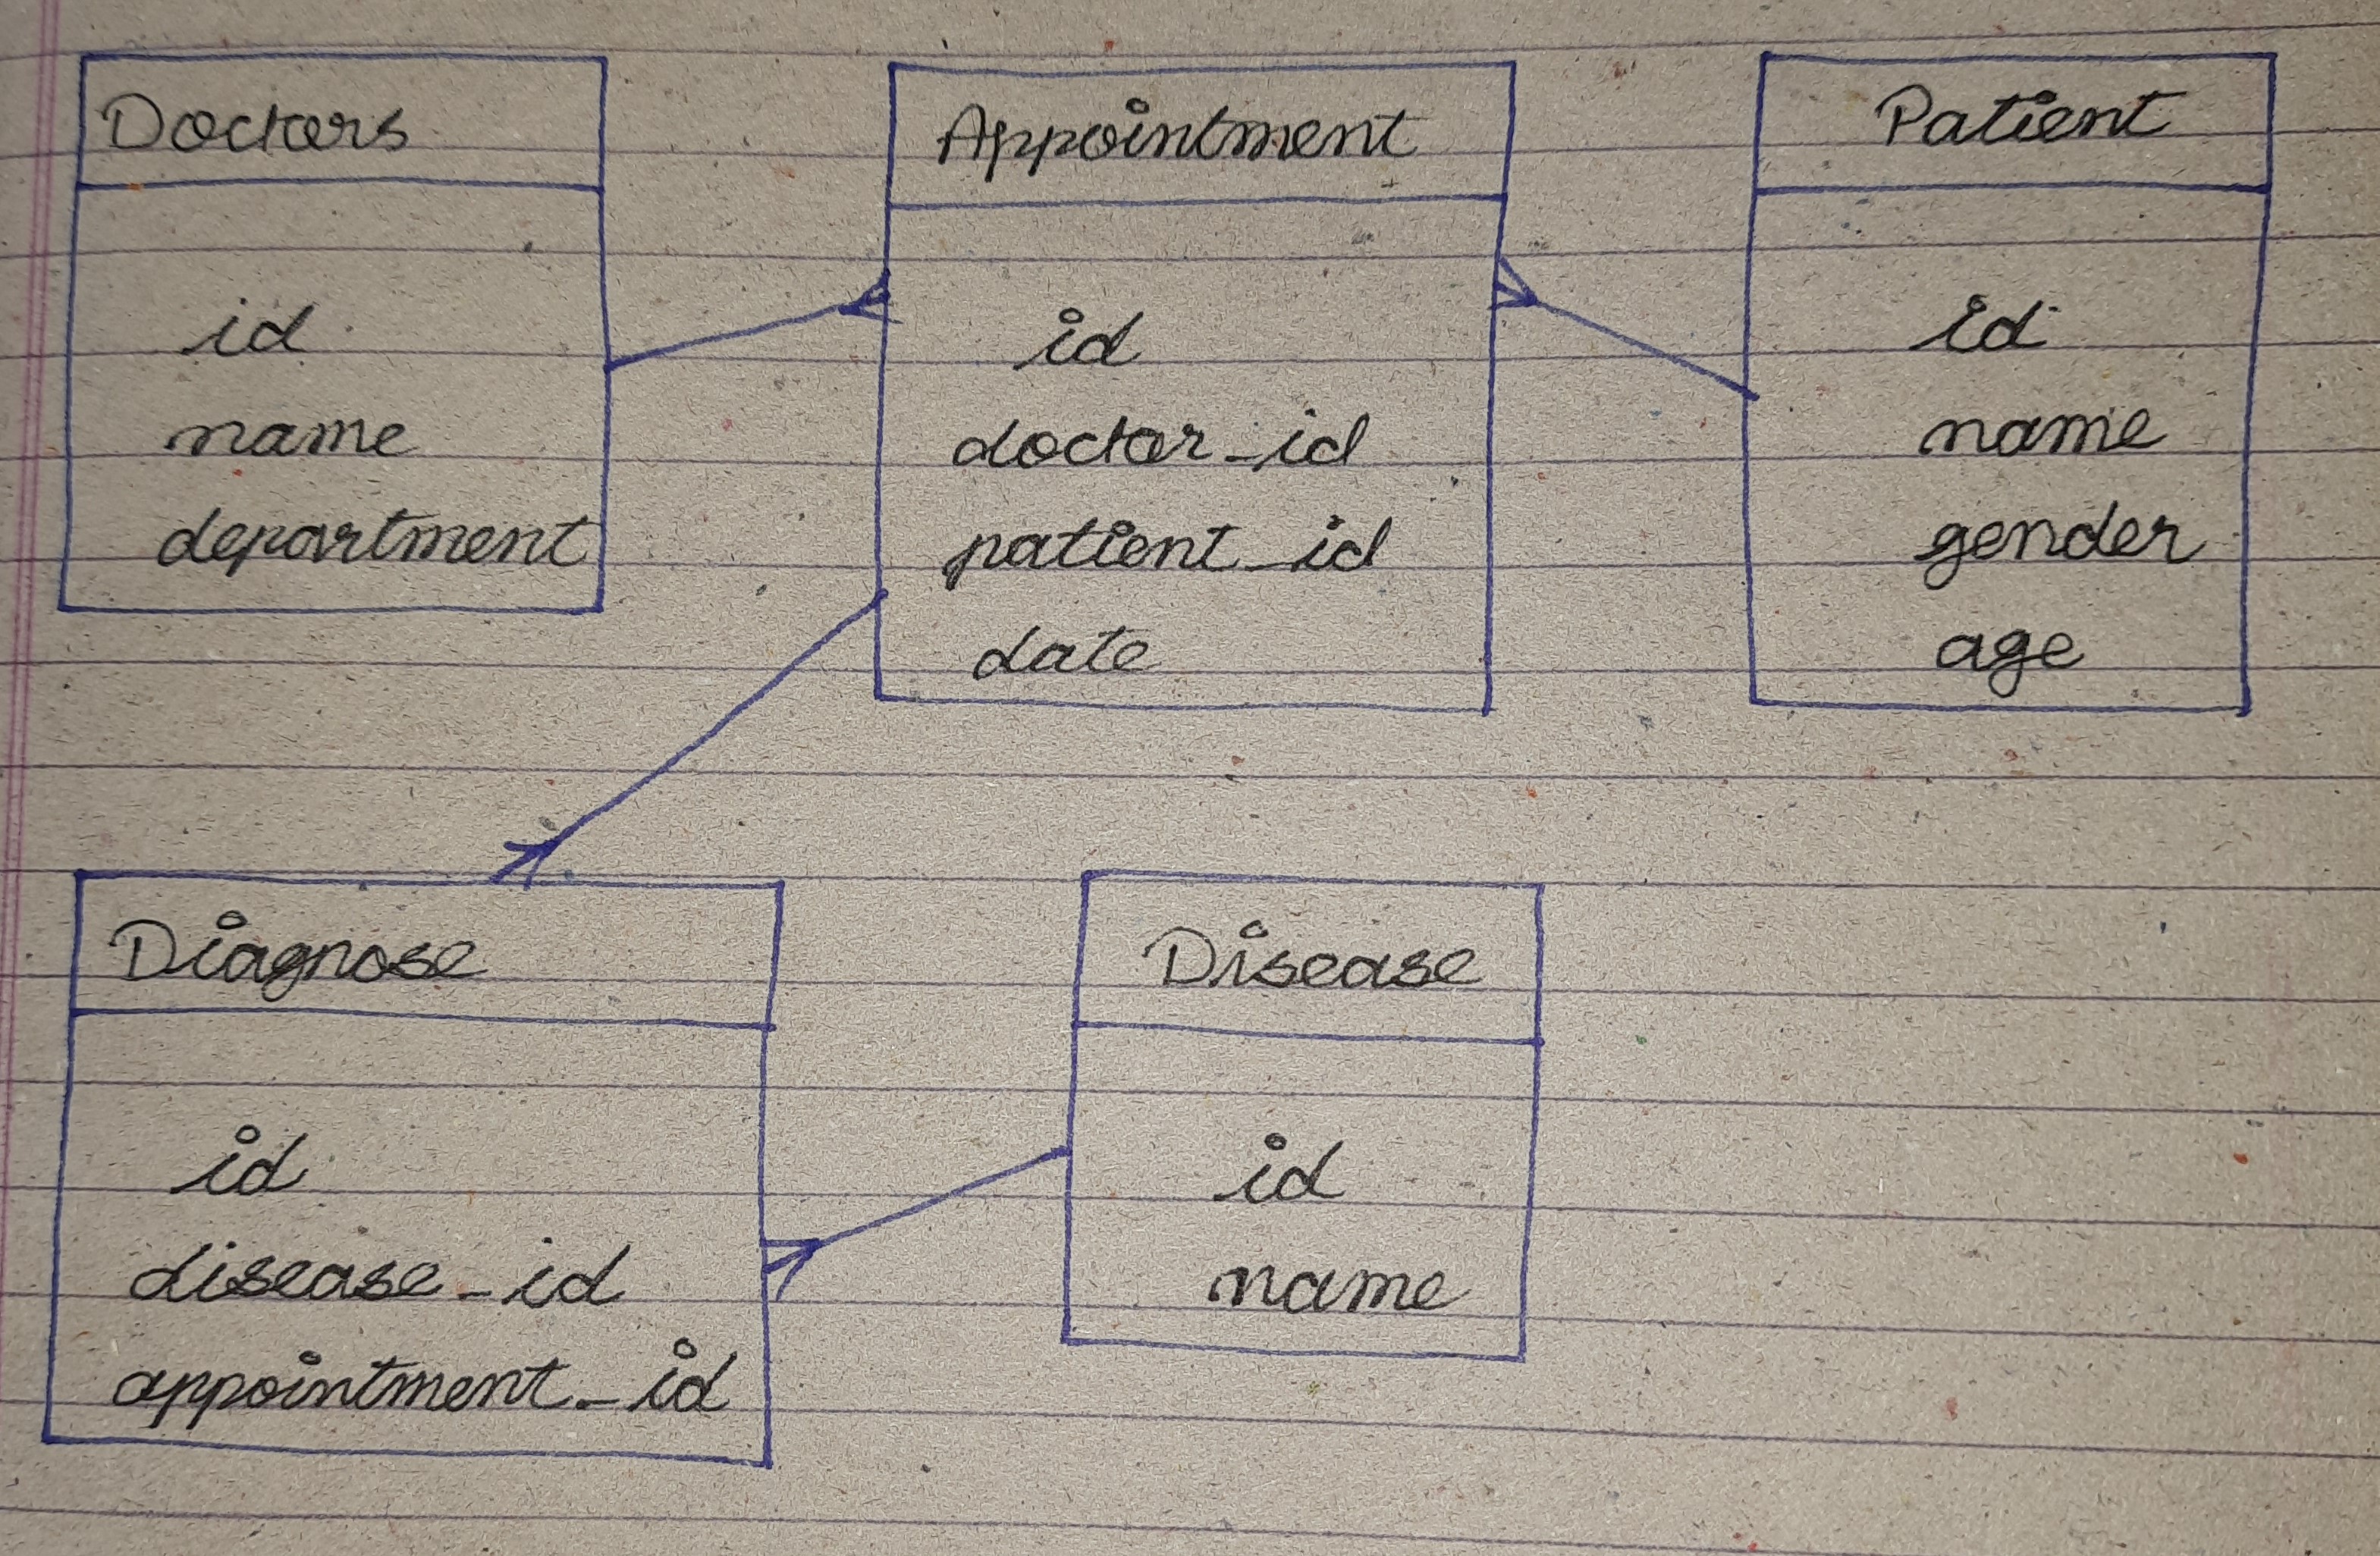 Doctors
id
name
department
Appointment
id
doctor_id
patient_id
date
Patient
id
name
gender
age
Diagnose
id
disease_id
appointment_id
Disease
id
name